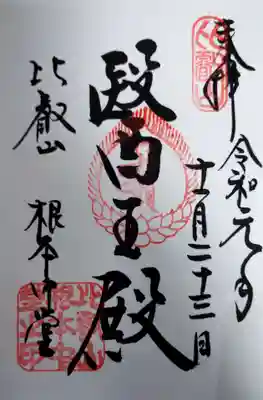 奉拝 令和元年
十一月二十三日
醫王殿
比叡山 根本中堂